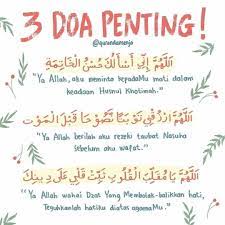 3 DOA PENTING!
@qurandamenjo
اَللّٰهُمَّ إِنِّي أَسْأَلُكَ حُسْنَ الْخَاتِمَةِ
"Ya Allah, aku meminta kepadaMu mati dalam
keadaan Husnul Khotimah."
اَللّٰهُمَّ ارْزُقْنِي تَوْبَةً نَصُوحًا قَبْلَ الْمَوْتِ
"Ya Allah berilah aku rezeki taubat Nasuha
sebelum aku wafat."
اَللّٰهُمَّ يَا مُقَلِّبَ الْقُلُوبِ ثَبِّتْ قَلْبِي عَلَى دِينِكَ
"Ya Allah wahai Dzat Yang Membolak-balikkan hati,
Teguhkanlah hatiku diatas agamaMu."